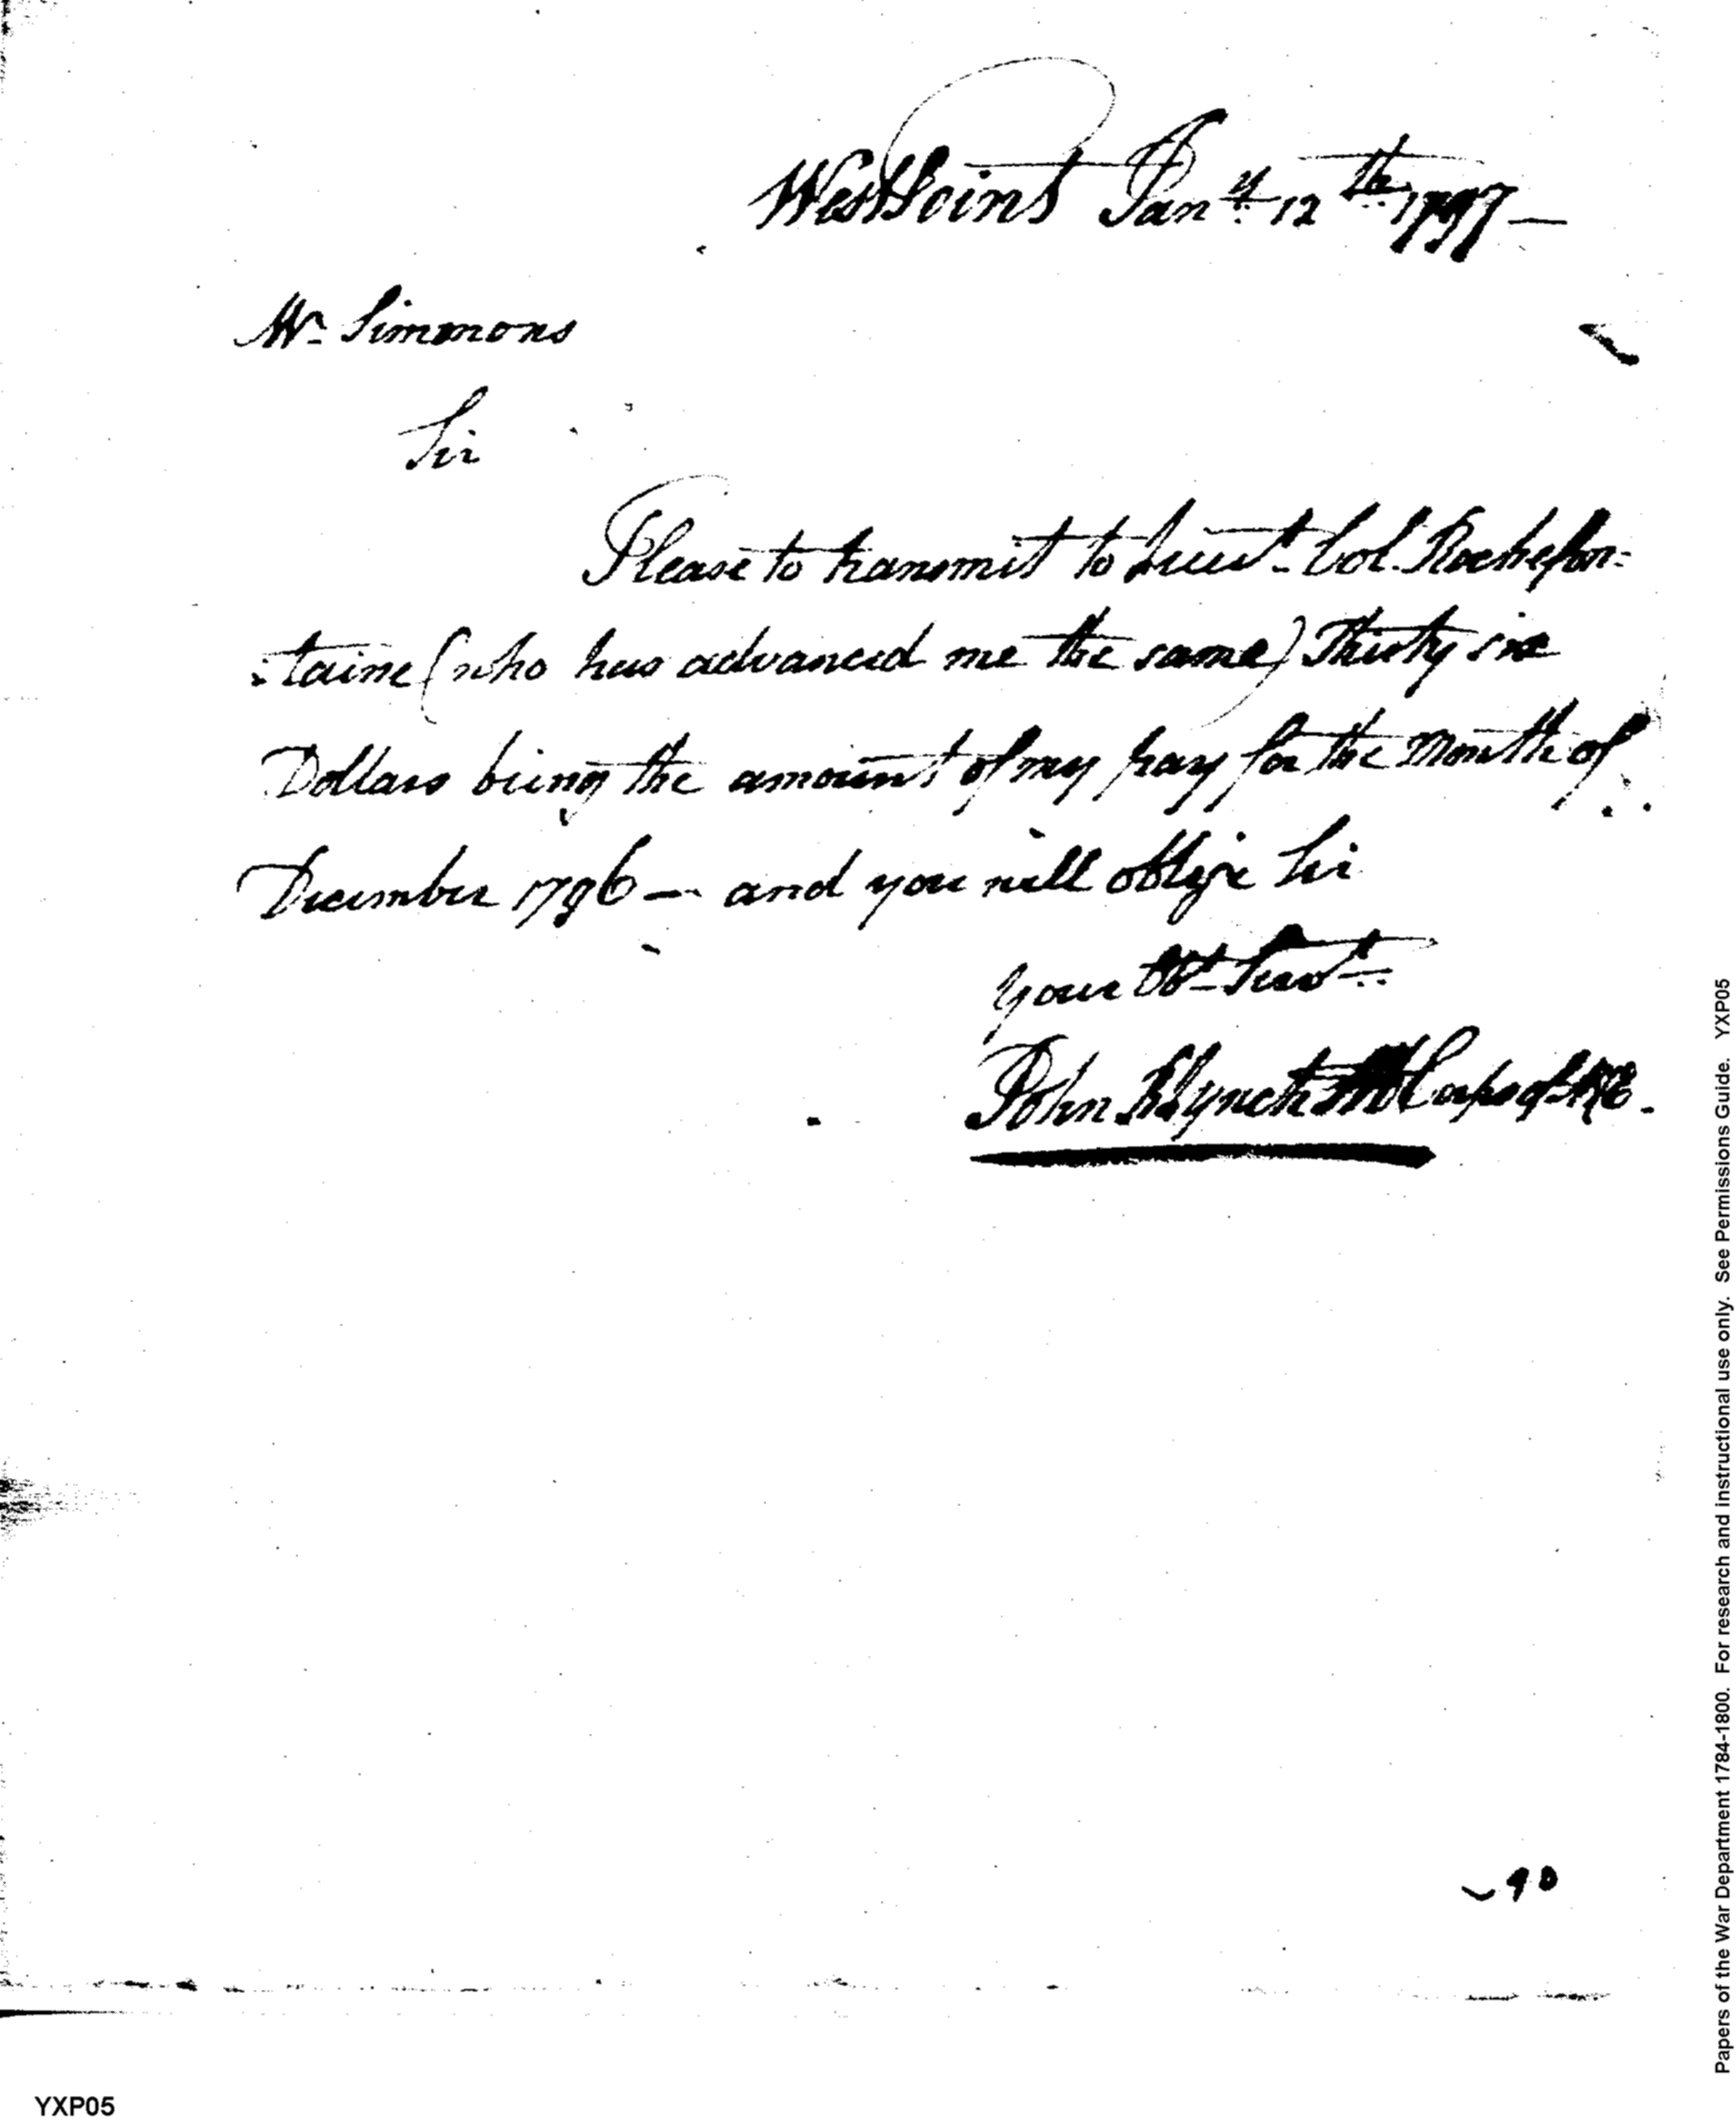 West Point Jany. 12th. 1797 —
Mr. Simmons
Sir
Please to transmit to Lieut. Col. Rochefon:
:taine (who has advanced me the same) Thirty six
Dollars being the amount of my pay for the Month of
December 1796 — and you will oblige Sir
Your Obt. Servt.
John Lynch Corps of A&E.
90
Papers of the War Department 1784-1800. For research and instructional use only. See Permissions Guide. YXP05
YXP05